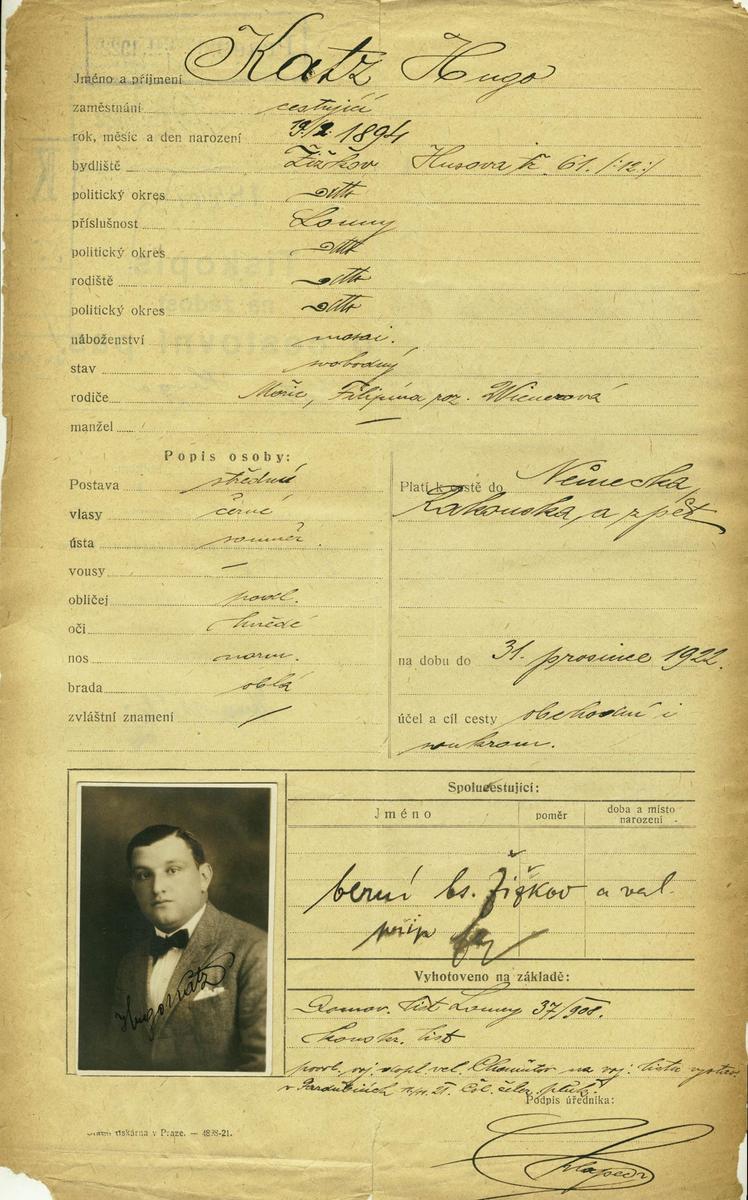 Jméno a příjmení Katz Hugo
zaměstnání cestující
rok, měsíc a den narození 19/2 1894
bydliště Žižkov Husova tř. 61. /:12:/
politický okres dtto
příslušnost Louny
politický okres dtto
rodiště dtto
politický okres dtto
náboženství mosai.
stav svobodný
rodiče Mořic, Filipína roz. Wienerová
manžel —
Popis osoby:
Postava střední
vlasy černé
ústa souměr.
vousy —
obličej podl.
oči hnědé
nos norm.
brada oblá
zvláštní znamení /
Platí k cestě do Německa,
Rakouska, a zpět
na dobu do 31. prosince 1922.
účel a cíl cesty obchodní i
soukrom.
Hugo Katz
Spolucestující:
Jméno poměr doba a místo narození
berní bs. Žižkov a val.
přip
Vyhotoveno na základě:
Domov. list Louny 37/908.
konskr. list
povol. voj. dopl. vel. Chomutov na voj. listu vystav.
v Pardubicích
Podpis úředníka:
tiskárna v Praze. — 4878-21.